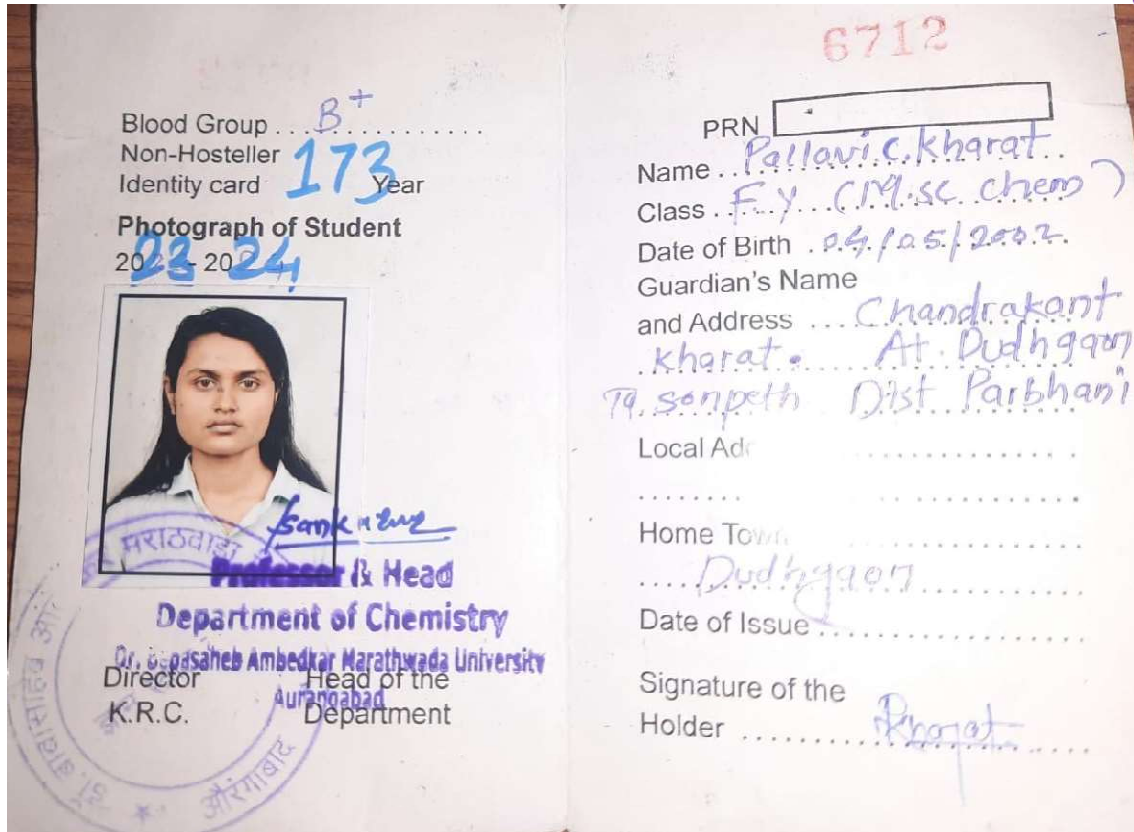 Blood Group ................ B+
Non-Hosteller
Identity card 173 Year
Photograph of Student
2023 - 2024
मराठवाडा
Professor & Head
Department of Chemistry
Dr. Babasaheb Ambedkar Marathwada University
Aurangabad
Director
K.R.C.
Head of the
Department
औरंगाबाद
6712
PRN
Name .. Pallavi.C.Kharat
Class . F.Y (M.sc chem)
Date of Birth . 04/05/2002.
Guardian's Name
and Address ... Chandrakant
Kharat. At. Dudhgaon
Tq. sonpeth Dist Parbhani
Local Add
Home Town
Dudhgaon
Date of Issue ................
Signature of the
Holder ........ PKharat